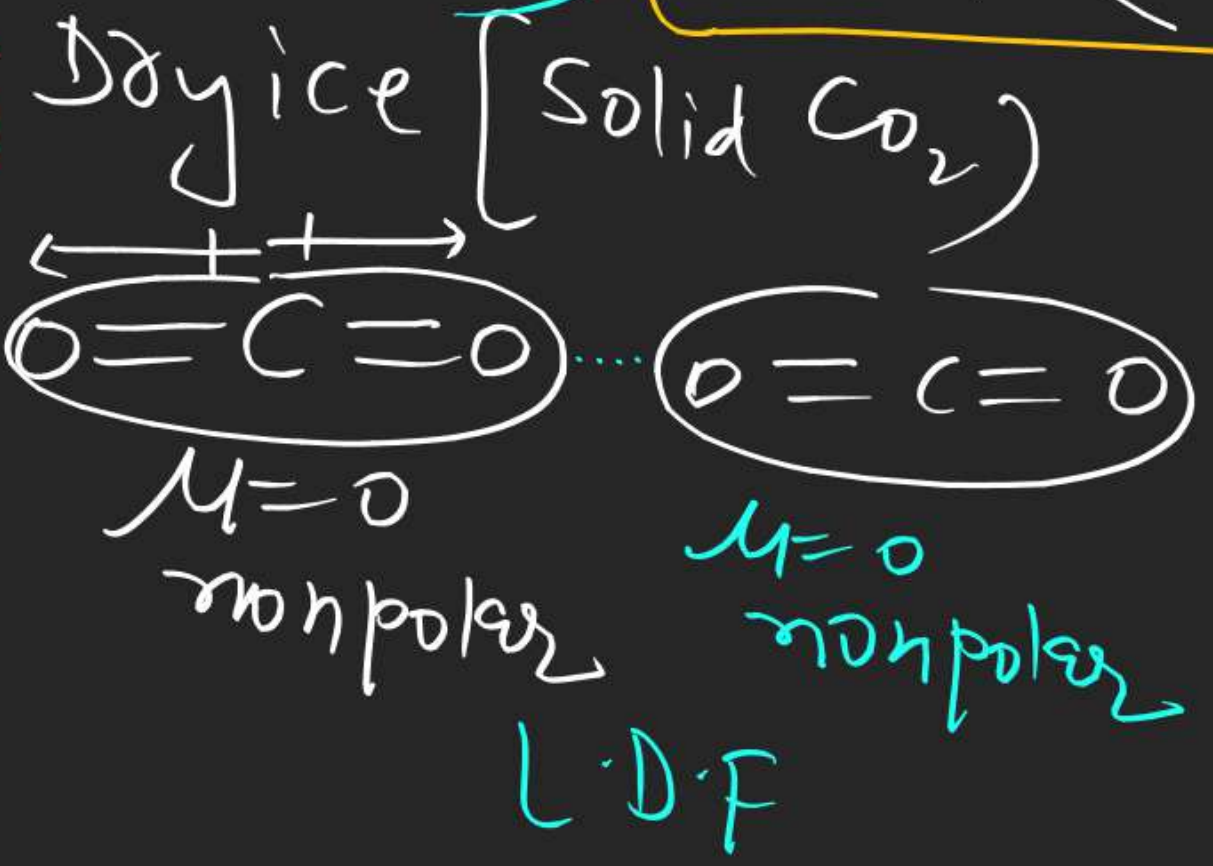 Dry ice [Solid CO₂)
O=C=O ..... O=C=O
μ=0 μ=0
nonpolar nonpolar
L.D.F